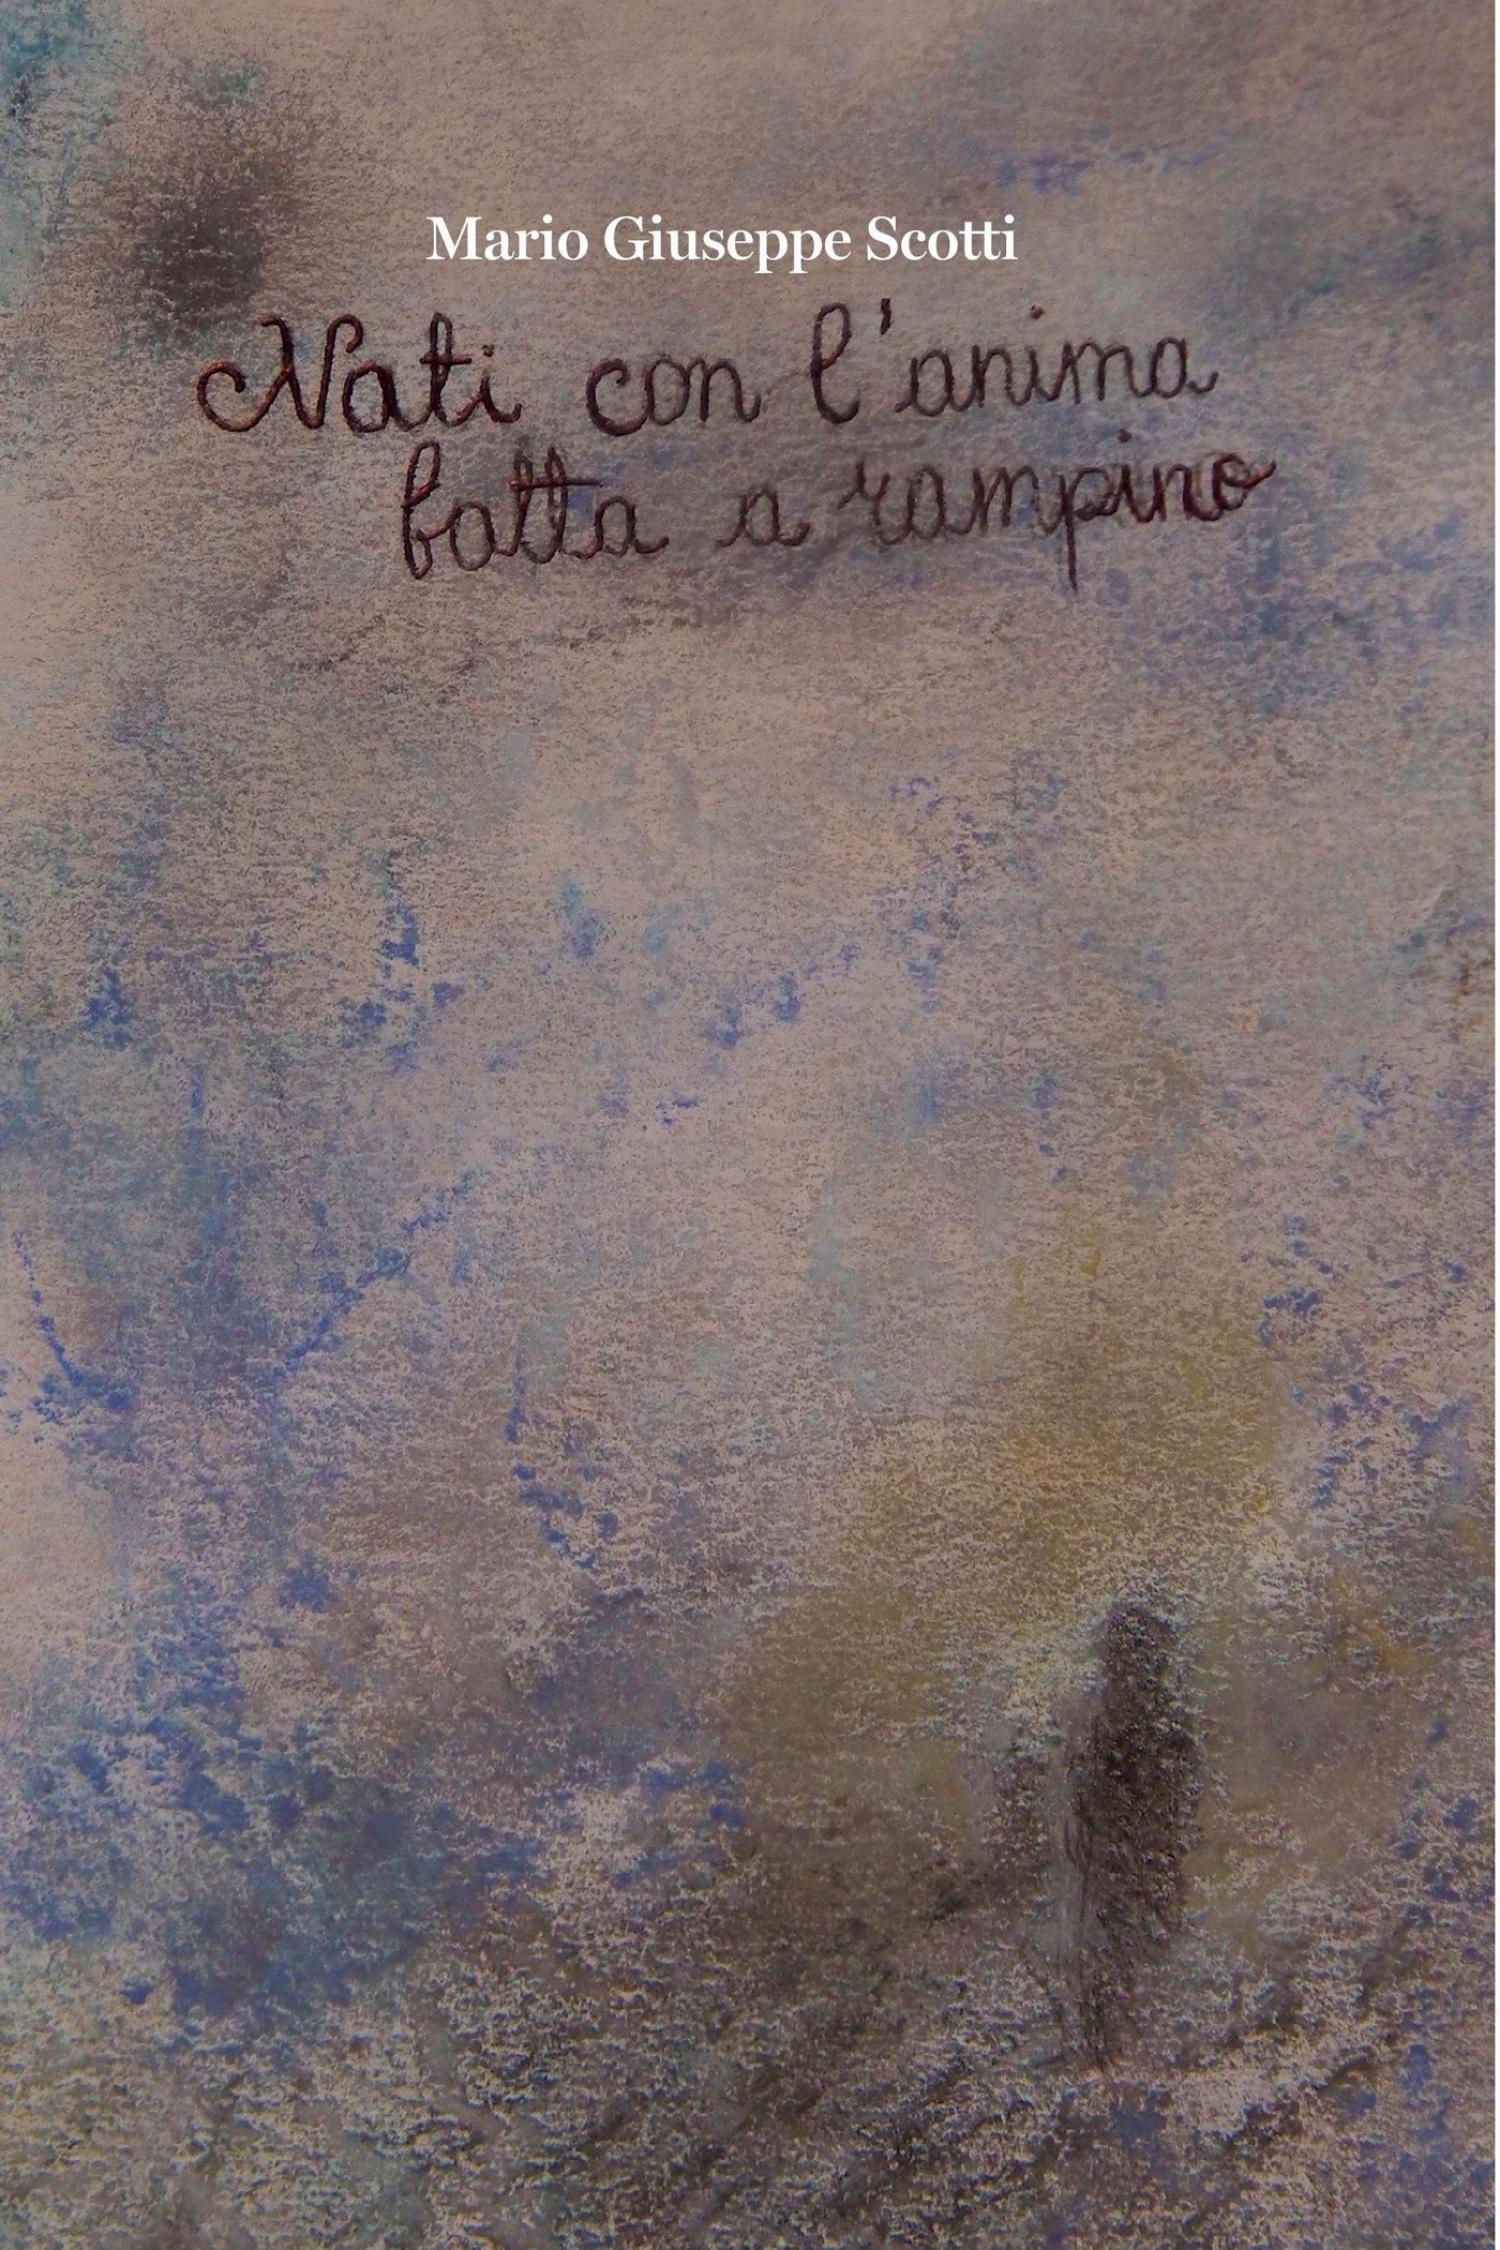 Mario Giuseppe Scotti
Nati con l'anima
fatta a rampino